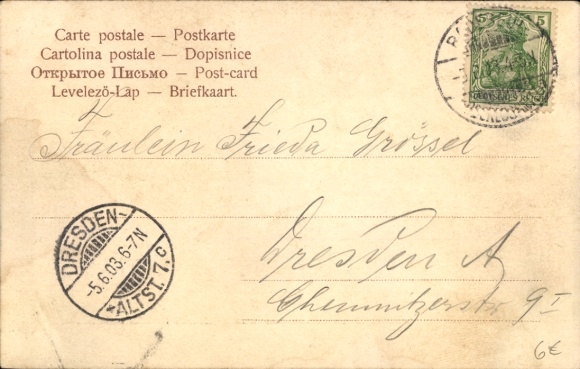 Carte postale — Postkarte
Cartolina postale — Dopisnice
Открытое Письмо — Post-card
Levelező-Lap — Briefkaart.
5 5
Fräulein Frieda Grössel
Dresden A
Chemnitzerstr 9 I
DRESDEN-
-5.6.03.6-7N
*ALTST. 7. c
6€